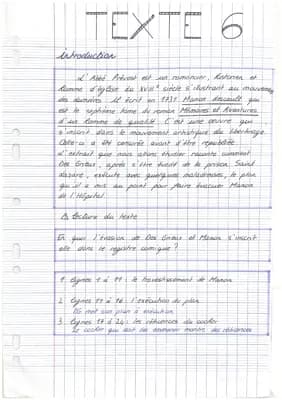 TEXTE 6
introduction
L'Abbé Prévost est un romancier, historien et
homme d'église du XVIIIe siècle s'illustrant au mouvement
des lumières. Il écrit en 1731 Manon Lescault qui
est le septième tome du roman Mémoires et Aventures
d'un homme de qualité. C'est une œuvre qui
s'inscrit dans le mouvement artistique du libertinage.
Celle-ci a été censurée avant d'être republiée.
L'extrait que nous allons étudier raconte comment
Des Grieux, après s'être évadé de la prison Saint
Lazare, exécute avec quelques maladresses, le plan
qu'il a mis au point pour faire évader Manon
de l'Hôpital.
lecture du texte
En quoi l'évasion de Des Grieux et Manon s'inscrit
elle dans le registre comique ?
1 lignes 1 à 11 : le travestissement de Manon
2 lignes 11 à 16 : l'exécution du plan
DG met son plan à exécution
3 lignes 17 à 24 : les réticences du cocher
Le cocher qui doit les emmener montre des réticences